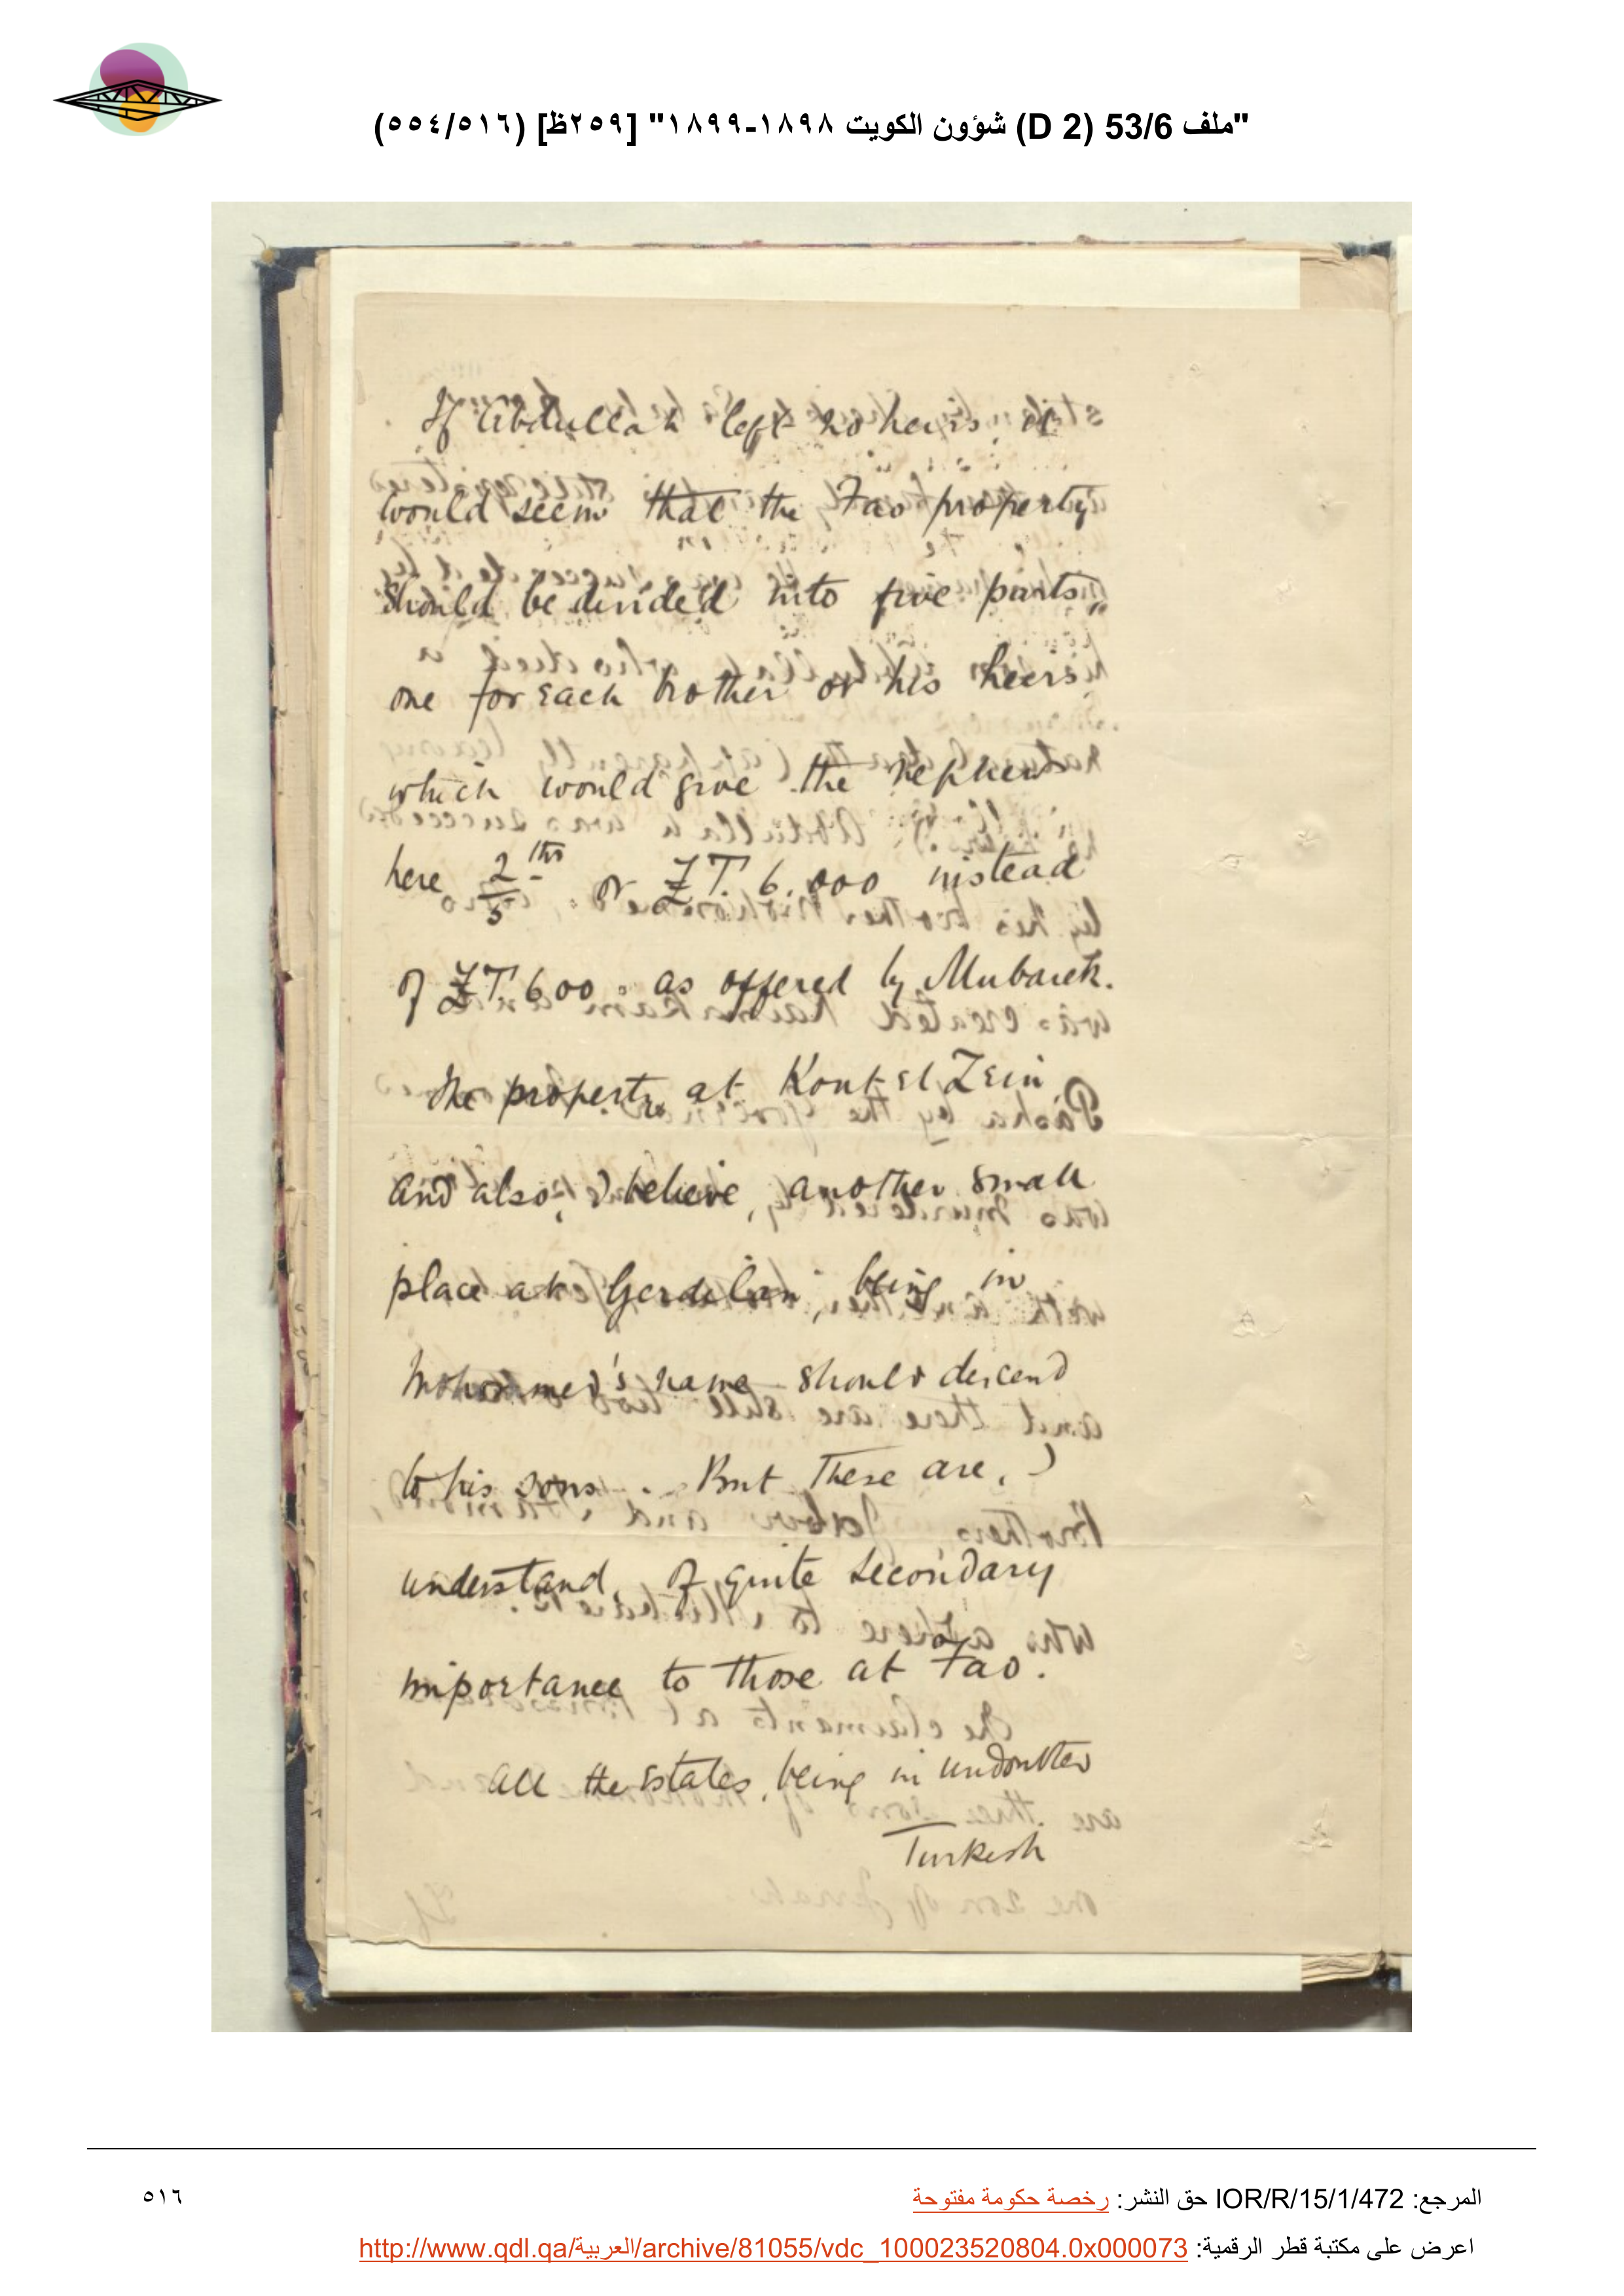 "ملف 53/6 (D 2) شؤون الكويت ١٨٩٨-١٨٩٩" [٢٥٩ظ] (٥١٦/٥٥٤)
If Abdullah left no heirs, it
would seem that the Fao property
should be divided into five parts,
one for each brother or his heirs,
which would give the nephews
here 2/5ths or £T. 6,000 instead
of £T 600. as offered by Mubarek.
The property at Kout el Zein
and also, I believe, another small
place at Gerdelan, being in
Mohommed's name should descend
to his sons. But these are, I
understand, of quite secondary
importance to those at Fao.
All the estates, being in undoubted
Turkish
المرجع: IOR/R/15/1/472 حق النشر: رخصة حكومة مفتوحة
٥١٦
اعرض على مكتبة قطر الرقمية: http://www.qdl.qa/العربية/archive/81055/vdc_100023520804.0x000073